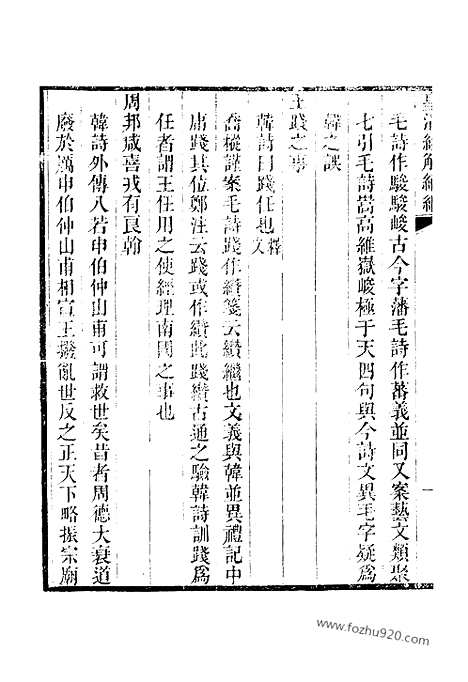 皇清經解續編
毛詩作駿駿峻古今字藩毛詩作蕃義並同又案藝文類聚
七引毛詩嵩高維嶽峻極于天四句與今詩文異毛字疑爲
韓之誤
王踐之事
韓詩曰踐任也釋文
喬樅謹案毛詩踐作纘箋云纘繼也文義與韓並異禮記中
庸踐其位鄭注云踐或作纘此踐纘古通之驗韓詩訓踐爲
任者謂王任用之使經理南國之事也
周邦咸喜戎有良翰
韓詩外傳八若申伯仲山甫可謂救世矣昔者周德大衰道
廢於厲申伯仲山甫相宣王撥亂世反之正天下略振宗廟
www.fozhu920.com